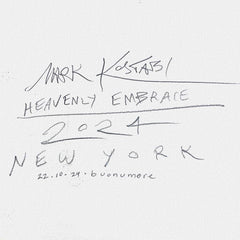 MARK KOSTABI
HEAVENLY EMBRACE
2024
NEW YORK
22.10.24 • buonumore